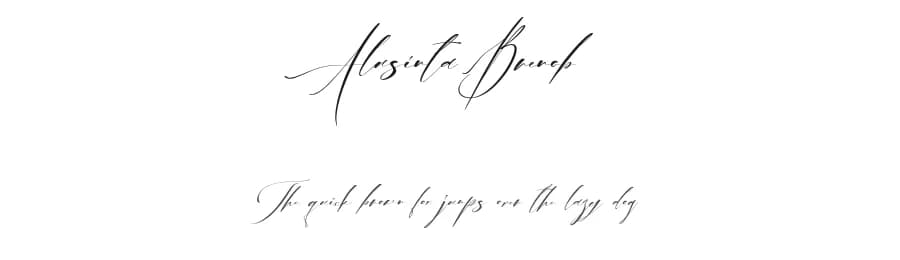 Alasinta Brench
The quick brown fox jumps over the lazy dog